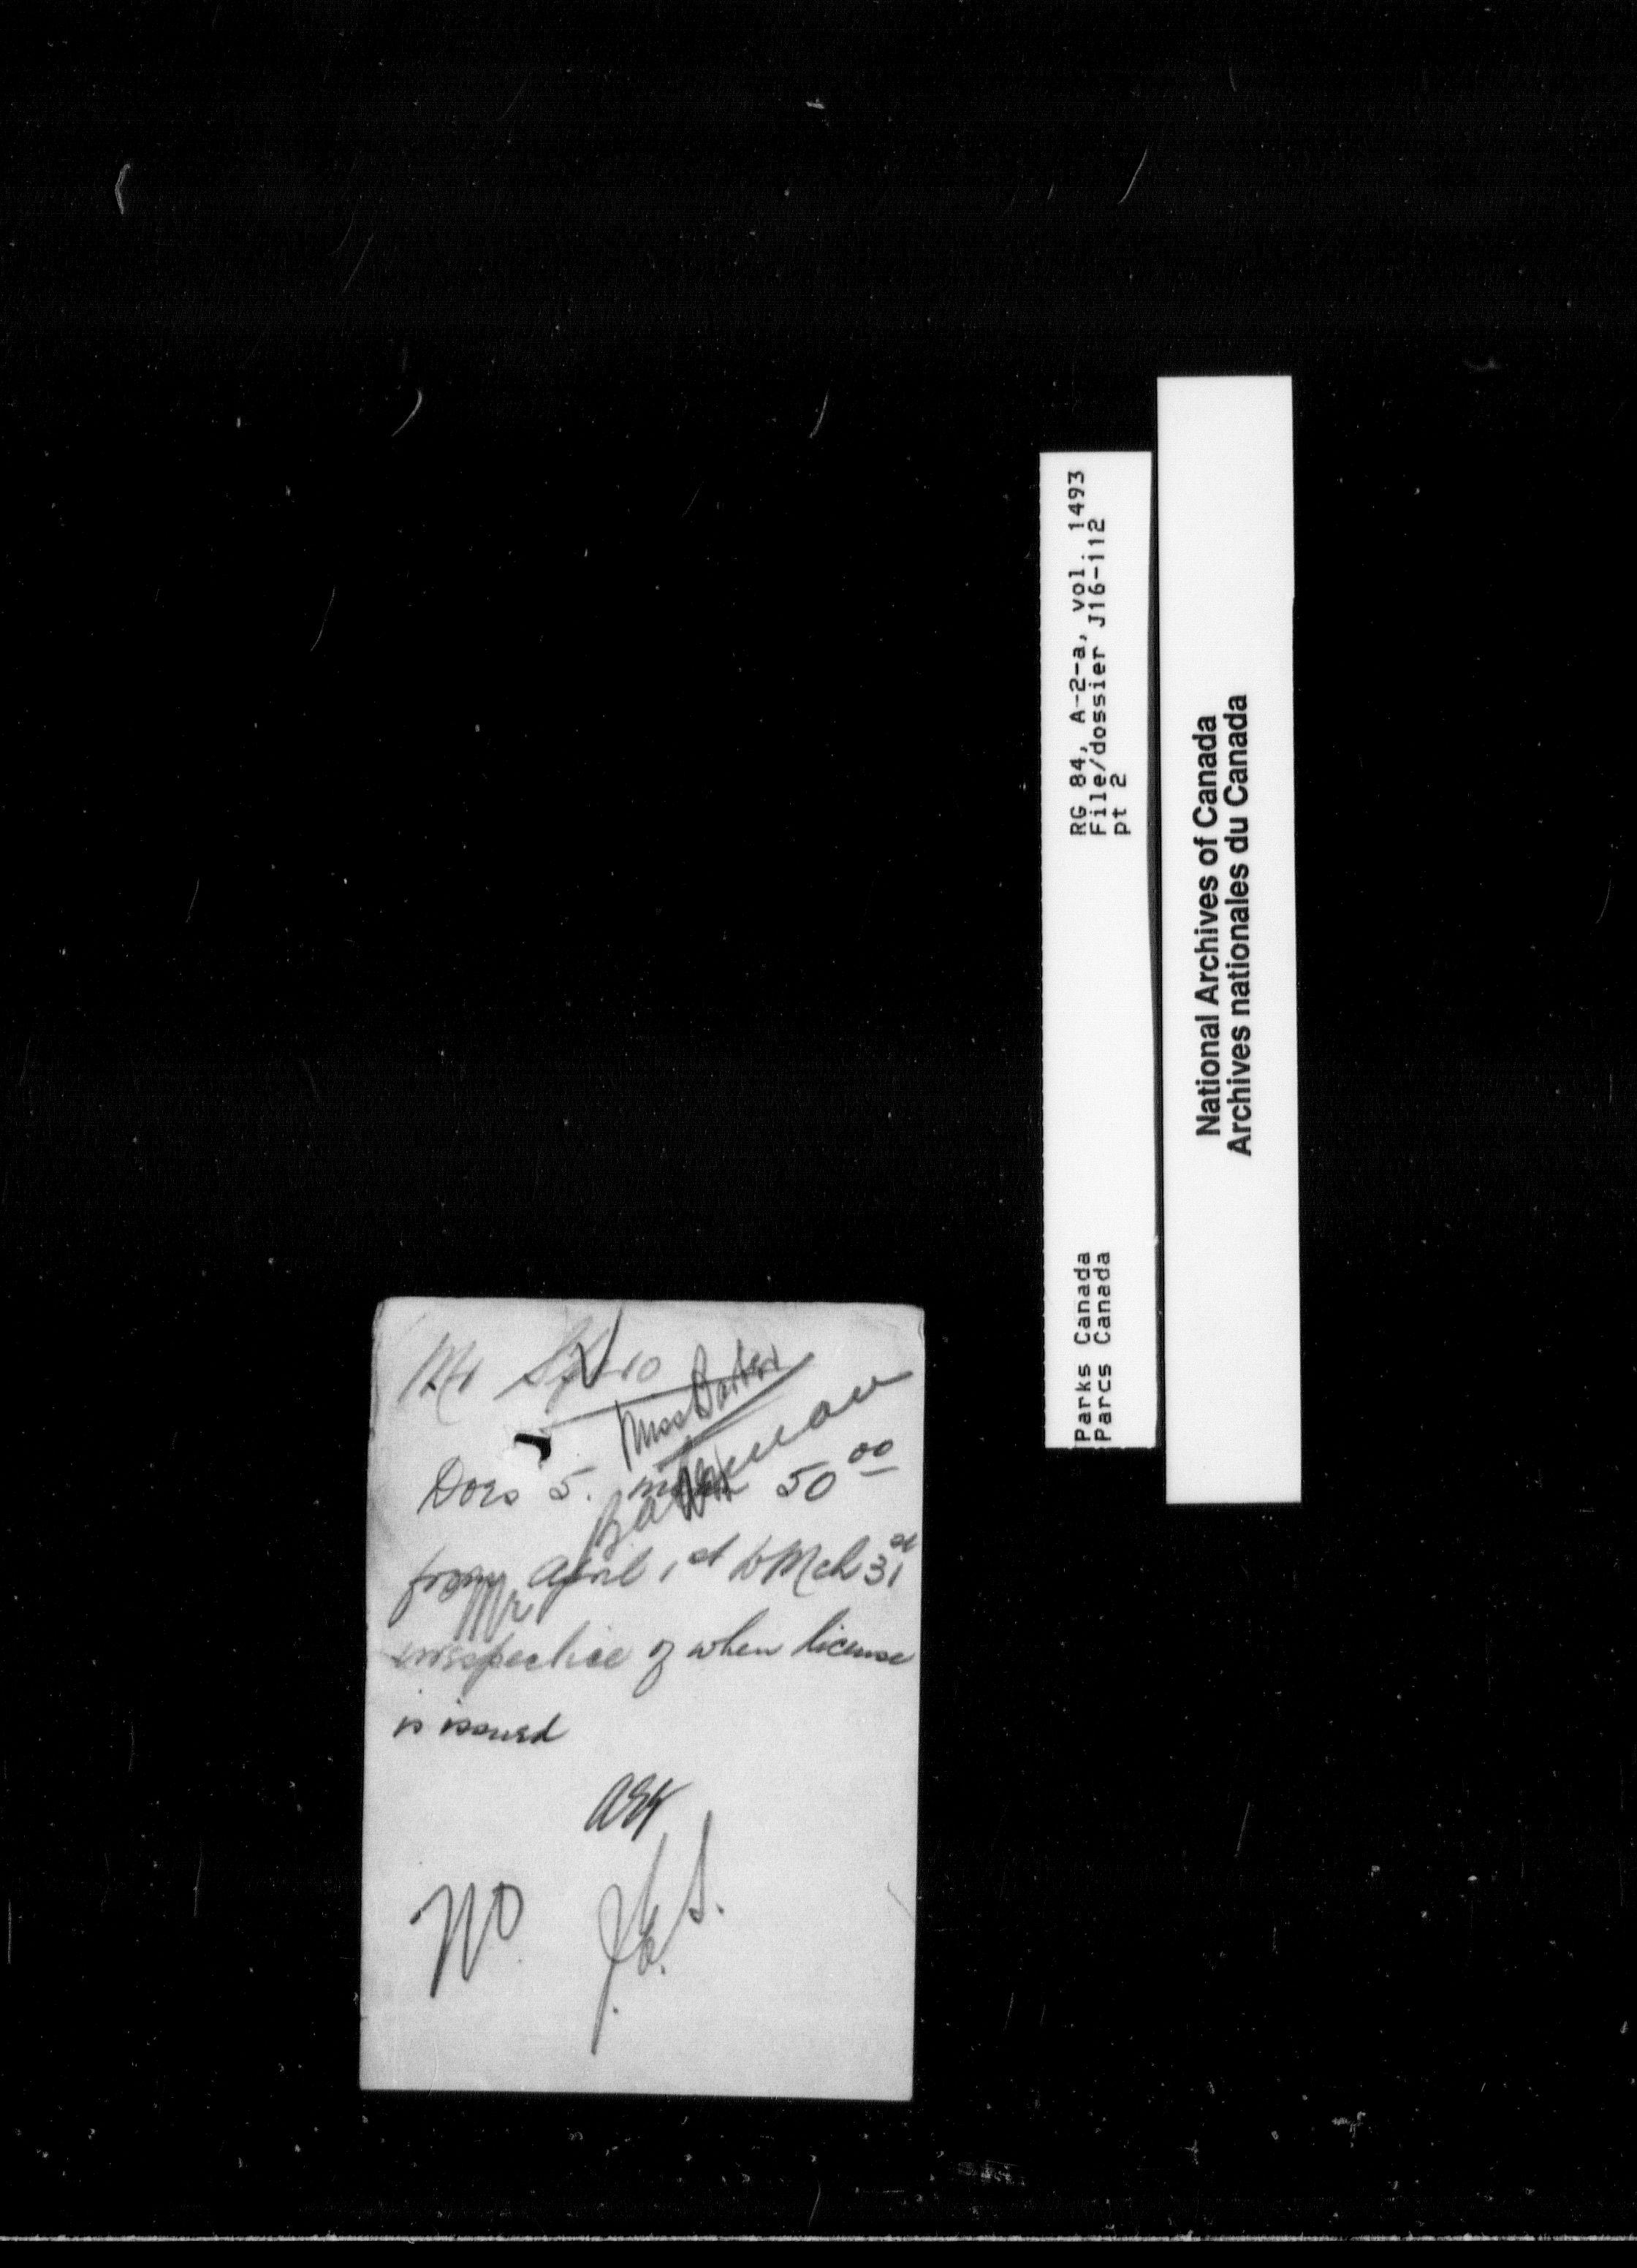 RG 84, A-2-a, vol. 1493
File/dossier J16-112
pt 2
Parks Canada
Parcs Canada
National Archives of Canada
Archives nationales du Canada
Mr
Miss Barker
Mr Bateman
Does 5. 50 00
from April 1st to Mch 31st
irrespective of when license
is issued
No.
J.E.S.